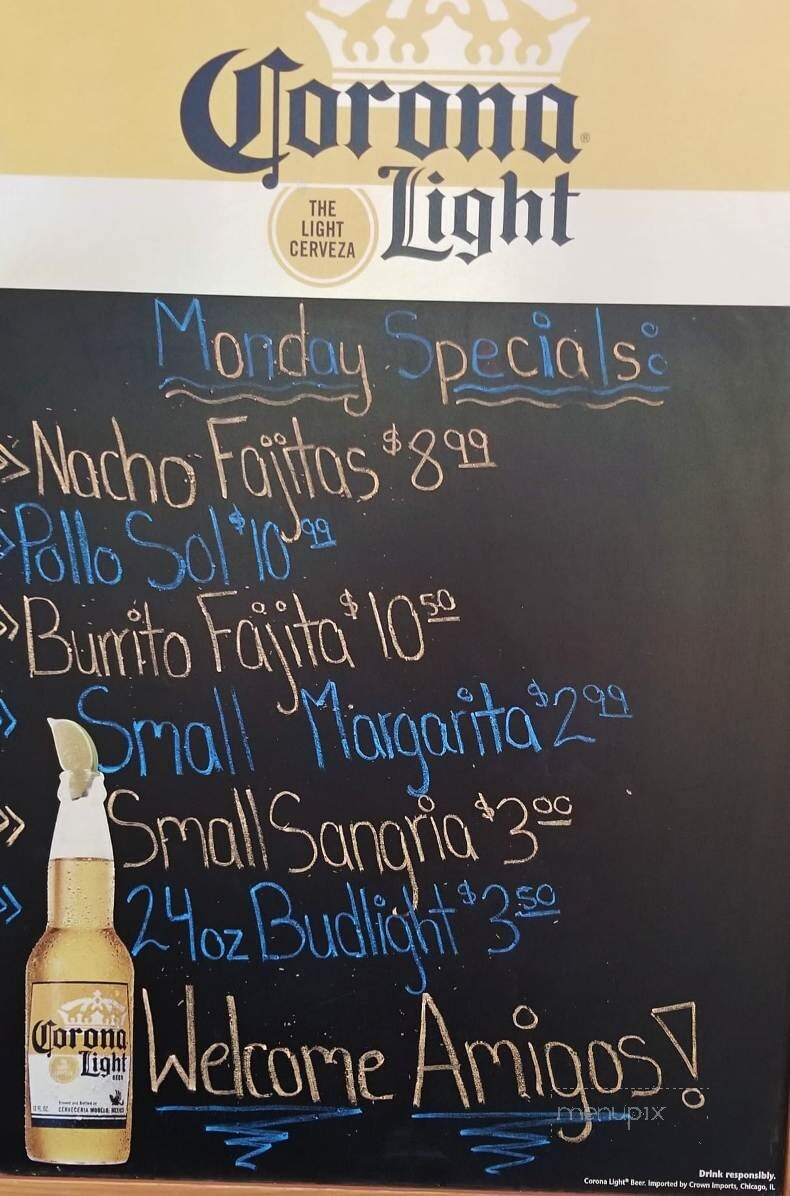 Corona®
Light
THE
LIGHT
CERVEZA
Monday Specials:
»Nacho Fajitas $8.99
»Pollo Sol $10.99
»Burrito Fajita $10.50
»Small Margarita $2.99
»Small Sangria $3.00
»24oz Budlight $3.50
Corona
Light
BEER
CERVECERIA MODELO, MEXICO
Welcome Amigos!
menupix
Drink responsibly.
Corona Light® Beer. Imported by Crown Imports, Chicago, IL